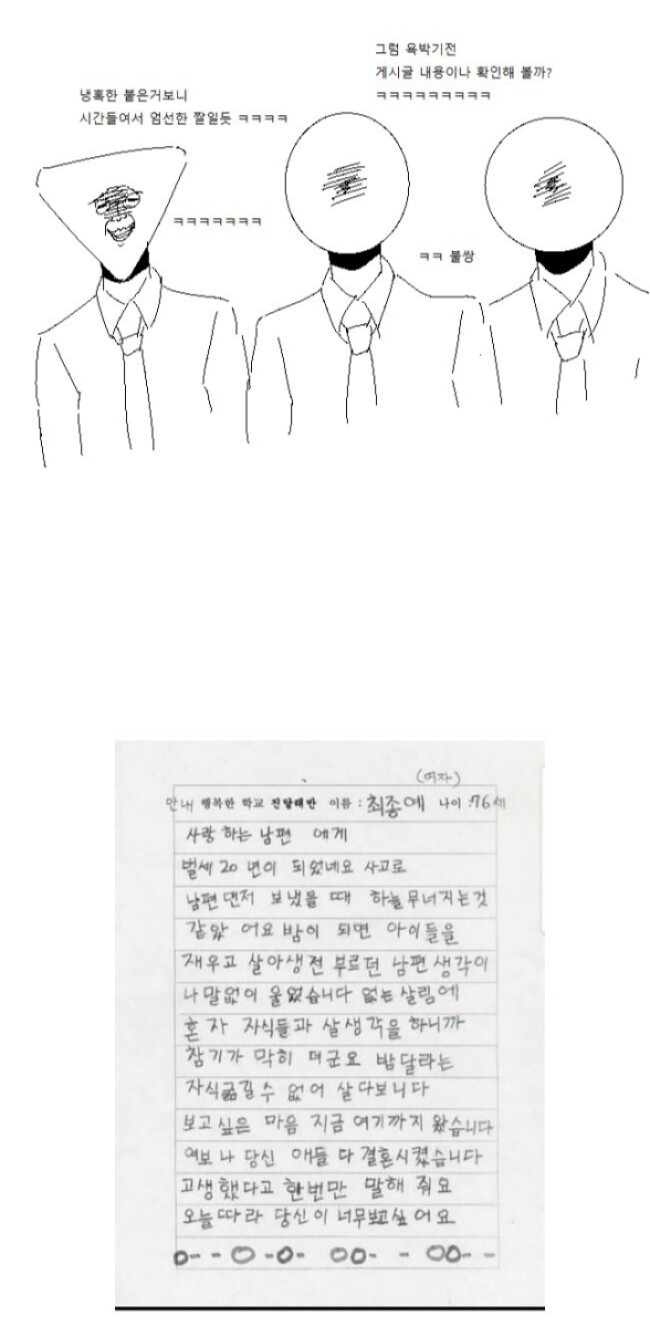 그럼 욕박기전
게시글 내용이나 확인해 볼까?
ㅋㅋㅋㅋㅋㅋㅋㅋㅋ
냉혹한 붙은거보니
시간들여서 엄선한 짤일듯 ㅋㅋㅋㅋ
ㅋㅋㅋㅋㅋㅋㅋ
ㅋㅋ 불쌍
(여자)
안내 행복한 학교 진달래반 이름 : 최종예 나이 :76세
사랑 하는 남편 에게
벌세 20 년이 되었네요 사고로
남편 댄저 보냈을 때 하늘 무너지는것
같았 어요 밤이 되면 아이들을
재우고 살아생전 부르던 남편 생각이
나 말없이 울었습니다 없는 살림에
혼 자 자식들과 살생각을 하니까
참기가 막히 더군요 밥달라는
자식굶길수 없어 살다보니다
보고싶은 마음 지금 여기까지 왔습니다
여보 나 당신 애들 다 결혼시켰습니다
고생했다고 한번만 말해 줘요
오늘따라 당신이 너무보고싶어요